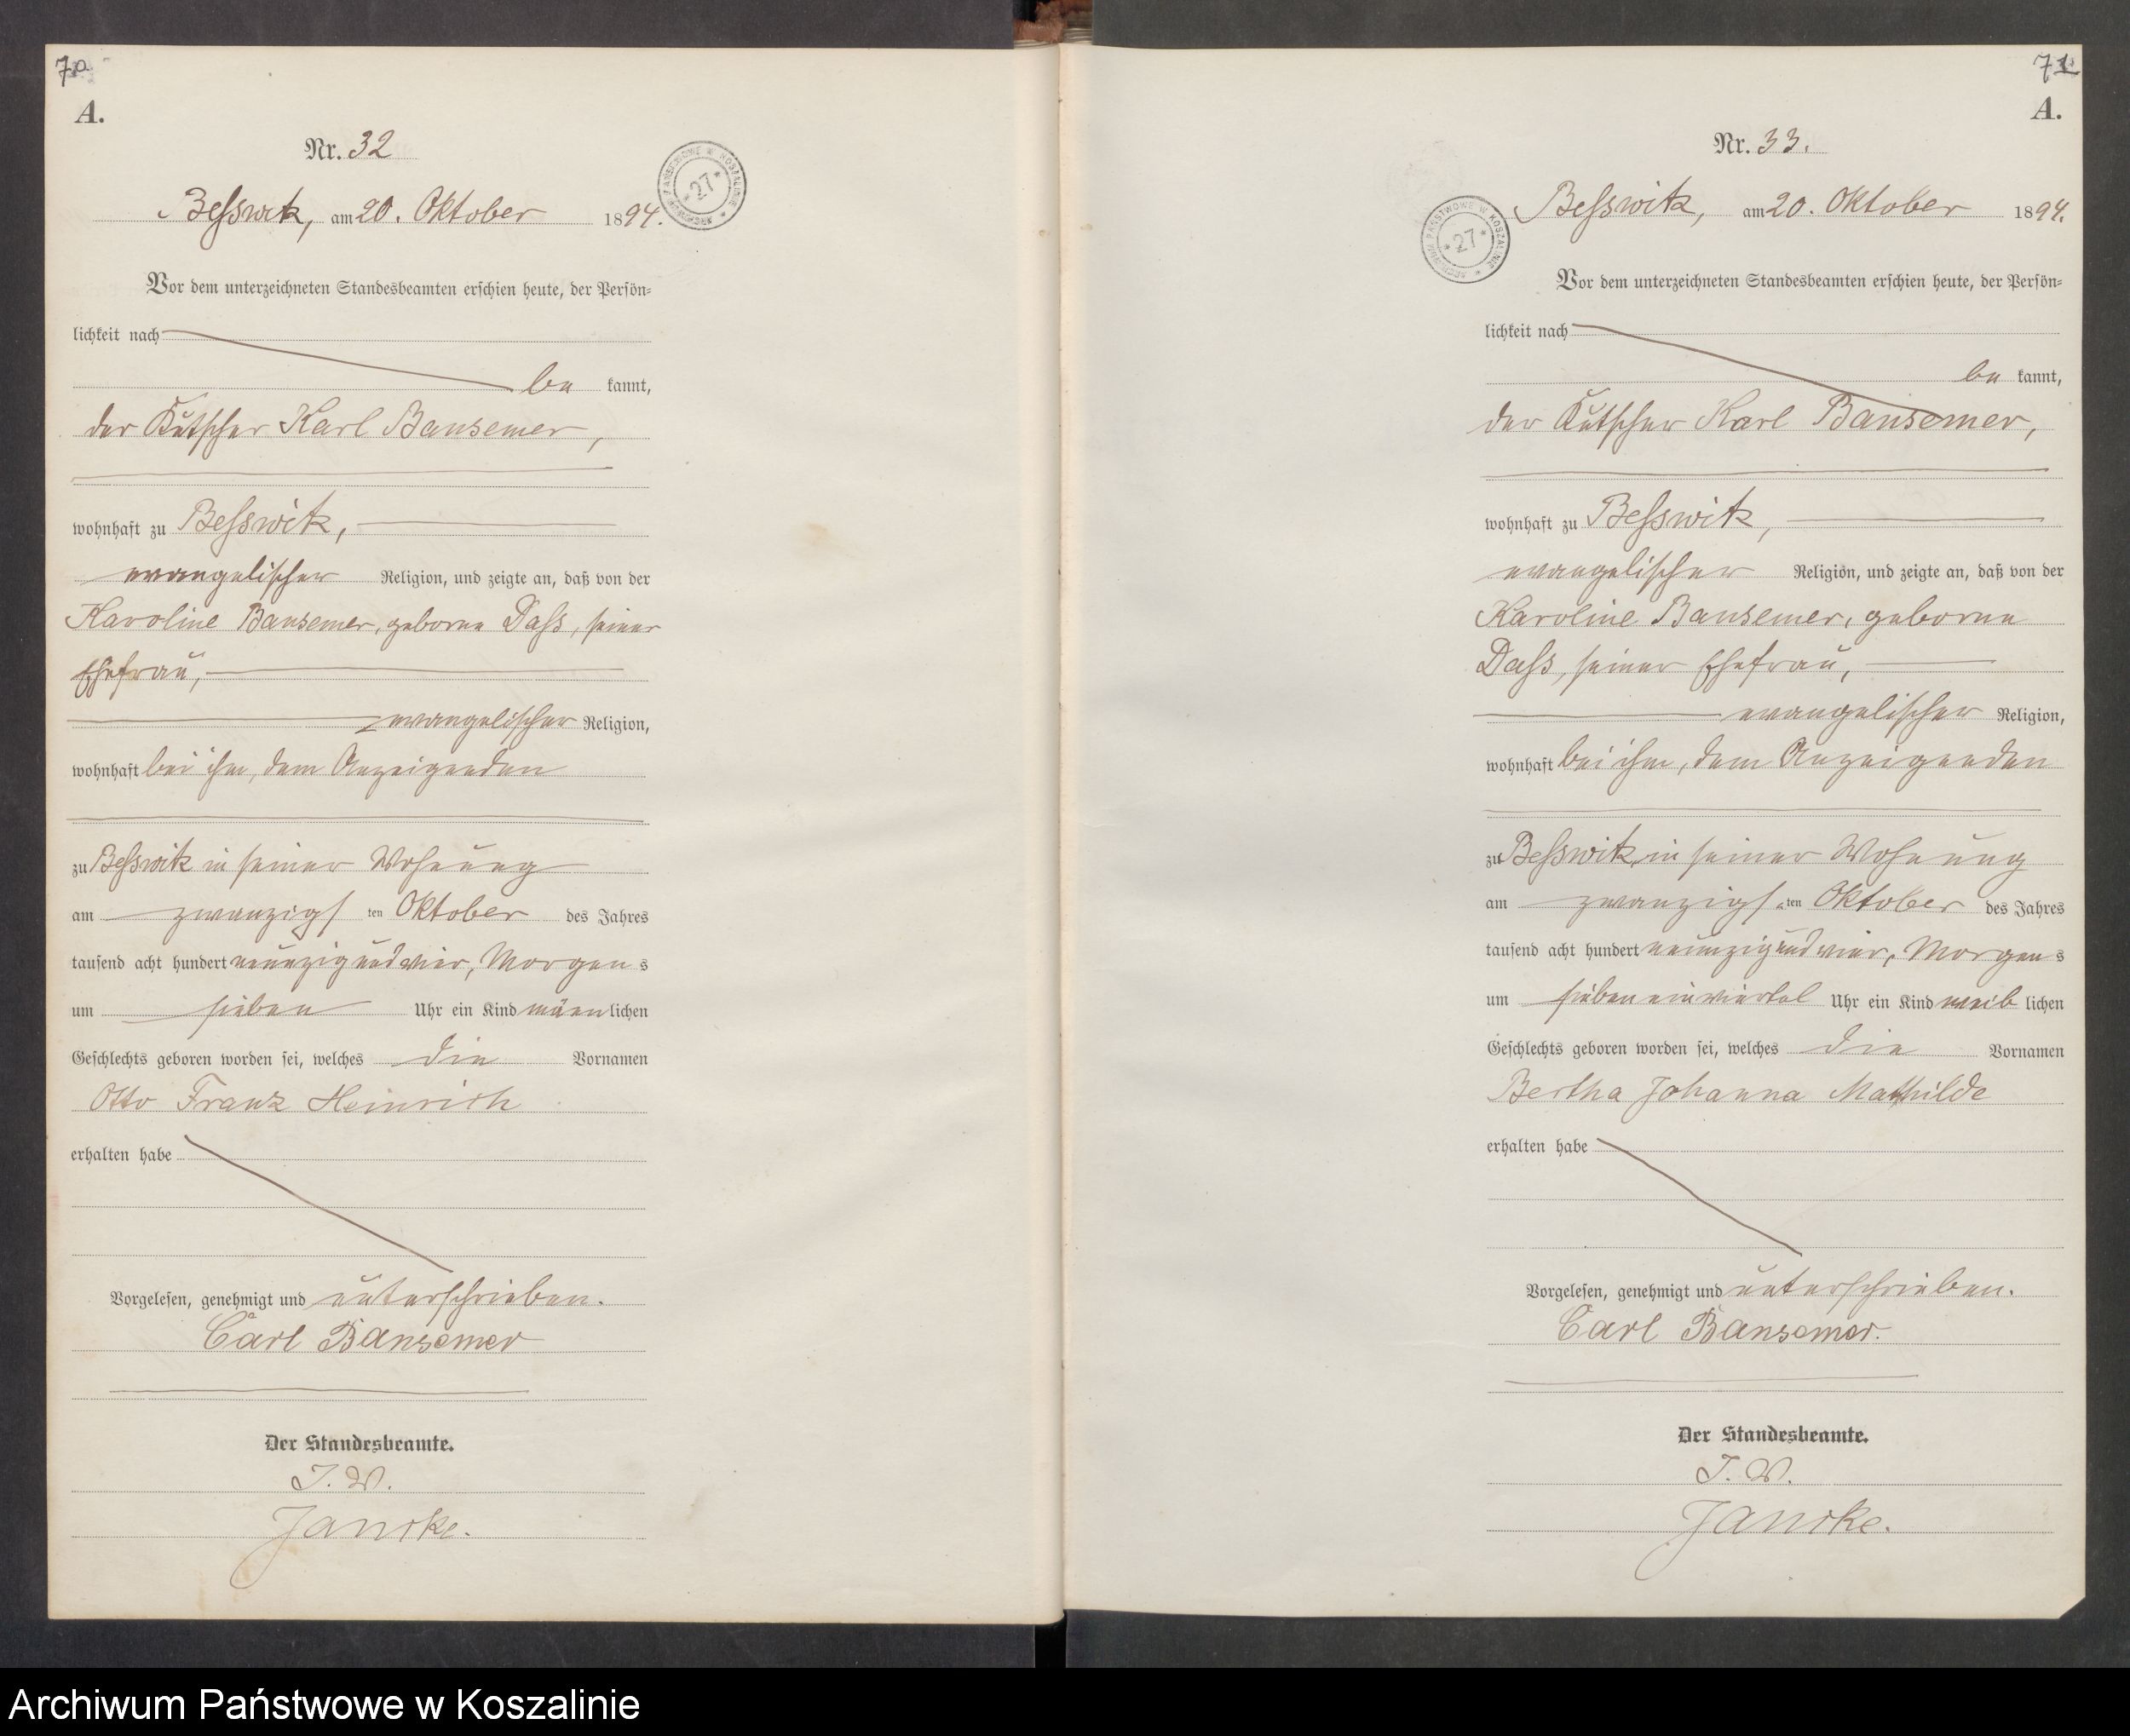 70
A.
Nr. 32
ARCHIWUM PAŃSTWOWE W KOSZALINIE * 27 *
Beſswitz, am 20. Oktober 1894.
Vor dem unterzeichneten Standesbeamten erschien heute, der Persön=
lichkeit nach
be kannt,
der Kutscher Karl Bansemer,
wohnhaft zu Beſswitz,
evangelischer Religion, und zeigte an, daß von der
Karoline Bansemer, geborne Daſs, seiner
Ehefrau,
evangelischer Religion,
wohnhaft bei ihm, dem Anzeigenden
zu Beſswitz in seiner Wohnung
am zwanzigs ten Oktober des Jahres
tausend acht hundert neunzig und vier, Morgens
um sieben Uhr ein Kind männlichen
Geschlechts geboren worden sei, welches die Vornamen
Otto Franz Heinrich
erhalten habe
Vorgelesen, genehmigt und unterschrieben.
Carl Bansemer
Der Standesbeamte.
I. V.
Jancke.
71
A.
Nr. 33.
ARCHIWUM PAŃSTWOWE W KOSZALINIE * 27 *
Beſswitz, am 20. Oktober 1894.
Vor dem unterzeichneten Standesbeamten erschien heute, der Persön=
lichkeit nach
be kannt,
der Kutscher Karl Bansemer,
wohnhaft zu Beſswitz,
evangelischer Religion, und zeigte an, daß von der
Karoline Bansemer, geborne
Daſs, seiner Ehefrau,
evangelischer Religion,
wohnhaft bei ihm, dem Anzeigenden
zu Beſswitz, in seiner Wohnung
am zwanzigs ten Oktober des Jahres
tausend acht hundert neunzig und vier, Morgens
um sieben einviertel Uhr ein Kind weib lichen
Geschlechts geboren worden sei, welches die Vornamen
Bertha Johanna Mathilde
erhalten habe
Vorgelesen, genehmigt und unterschrieben.
Carl Bansemer.
Der Standesbeamte.
I. V.
Jancke.
Archiwum Państwowe w Koszalinie